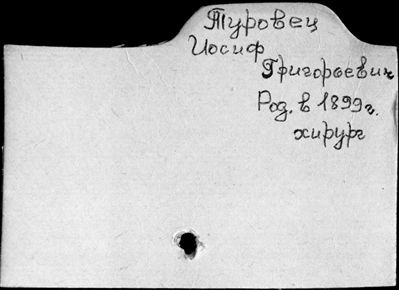 Туровец
Иосиф
Григорьевич
Род. в 1899 г.
хирург